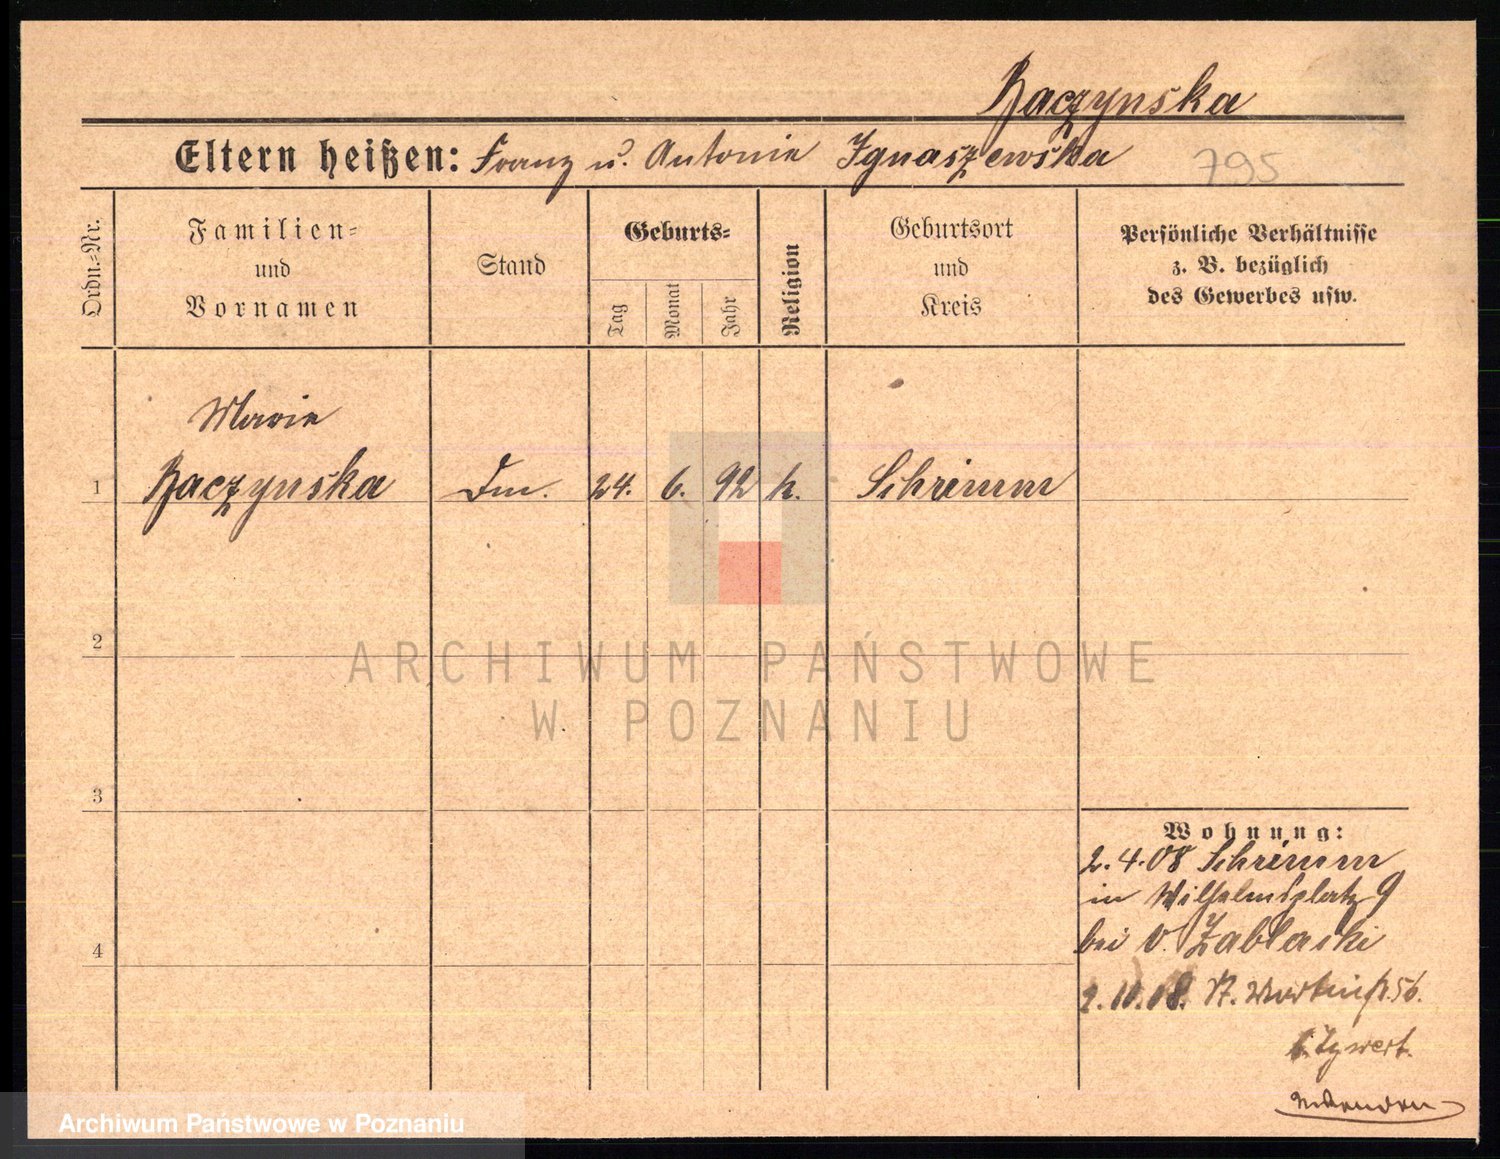 Raczynska
Eltern heißen: Franz u. Antonie Ignaszewska 795
Ordn.-Nr.
Familien-
und
Vornamen
Stand
Geburts-
Tag
Monat
Jahr
Religion
Geburtsort
und
Kreis
Persönliche Verhältnisse
z. B. bezüglich
des Gewerbes usw.
Marie
1 Raczynska Dm. 24. 6. 92 k. Schrimm
2
3
4
Wohnung:
2.4.08 Schrimm
in Wilhelmsplatz 9
bei v. Zablaski
2.10.08. St. Martinstr. 56.
ARCHIWUM PAŃSTWOWE
W POZNANIU
Archiwum Państwowe w Poznaniu